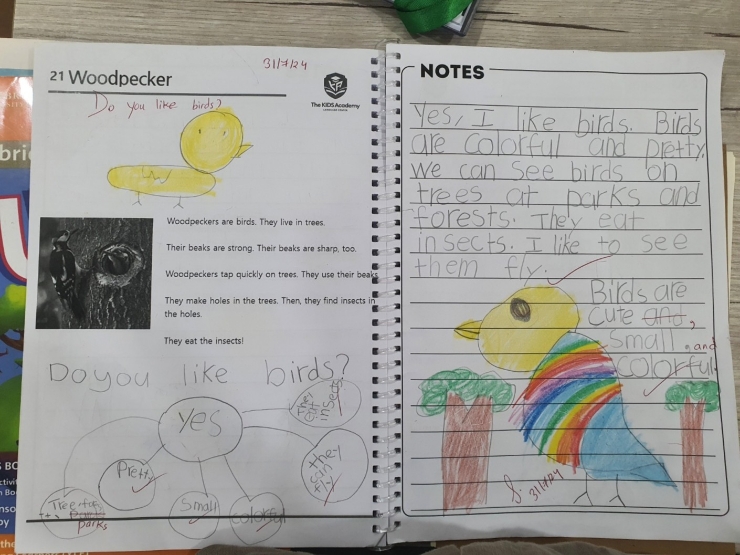 21 Woodpecker
31/7/24
The KIDS Academy
Do you like birds?
Woodpeckers are birds. They live in trees.
Their beaks are strong. Their beaks are sharp, too.
Woodpeckers tap quickly on trees. They use their beaks
They make holes in the trees. Then, they find insects in
the holes.
They eat the insects!
Do you like birds?
Yes
They
eat
insects
they
can
fly
Pretty
Small
colorful
parks
NOTES
Yes, I like birds. Birds
are colorful and pretty.
We can see birds on
trees at parks and
forests. They eat
insects. I like to see
them fly.
Birds are
cute and,
small and
colorful
31/7/24